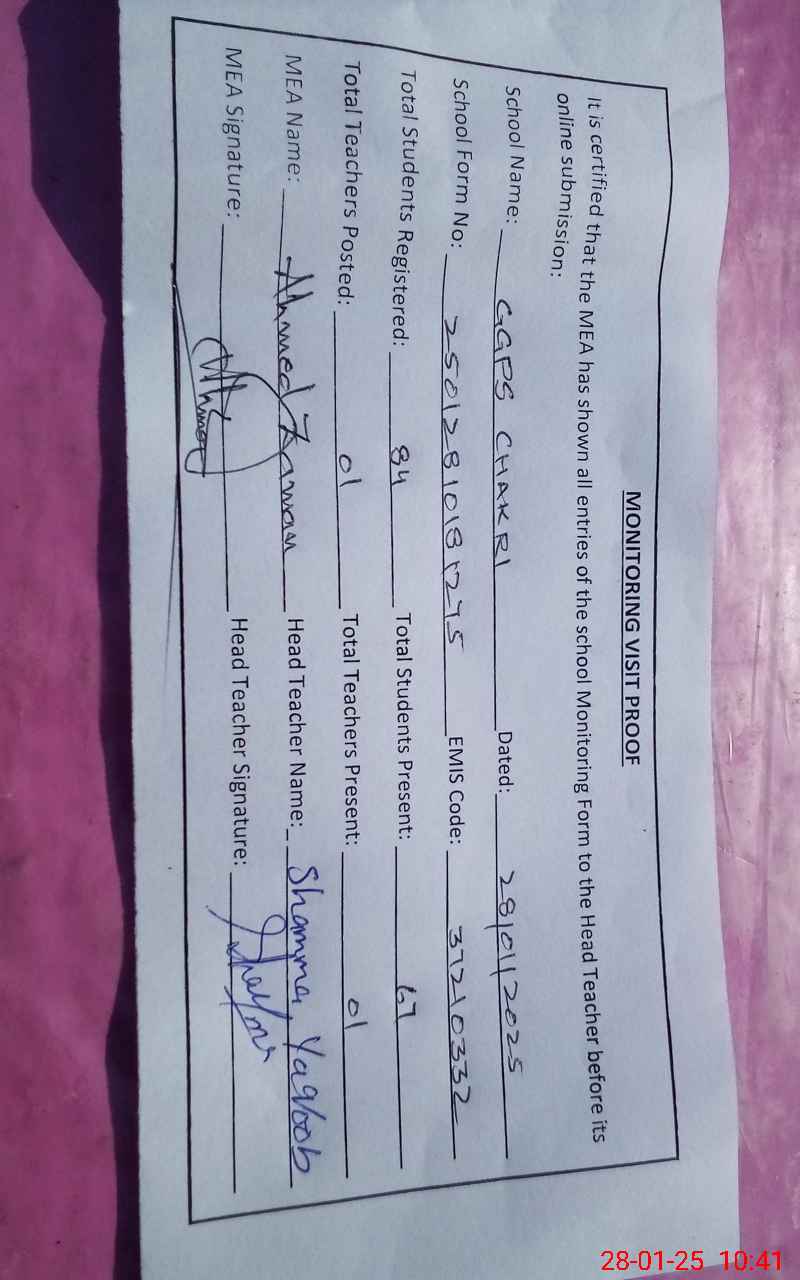 MONITORING VISIT PROOF
It is certified that the MEA has shown all entries of the school Monitoring Form to the Head Teacher before its
online submission:
School Name: GGPS CHAKRI Dated: 28/01/2025
School Form No: 2501281018 1275 EMIS Code: 37210332
Total Students Registered: 84 Total Students Present: 67
Total Teachers Posted: 01 Total Teachers Present: 01
MEA Name: Ahmed Zaman Head Teacher Name: Shamma, Yaqoob
MEA Signature: Head Teacher Signature:
28-01-25 10:41